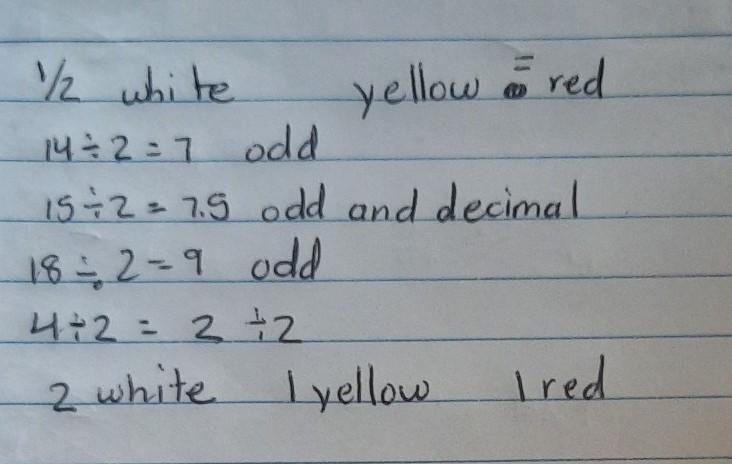 1/2 white yellow = red
14 ÷ 2 = 7 odd
15 ÷ 2 = 7.5 odd and decimal
18 ÷ 2 = 9 odd
4 ÷ 2 = 2 ÷ 2
2 white 1 yellow 1 red